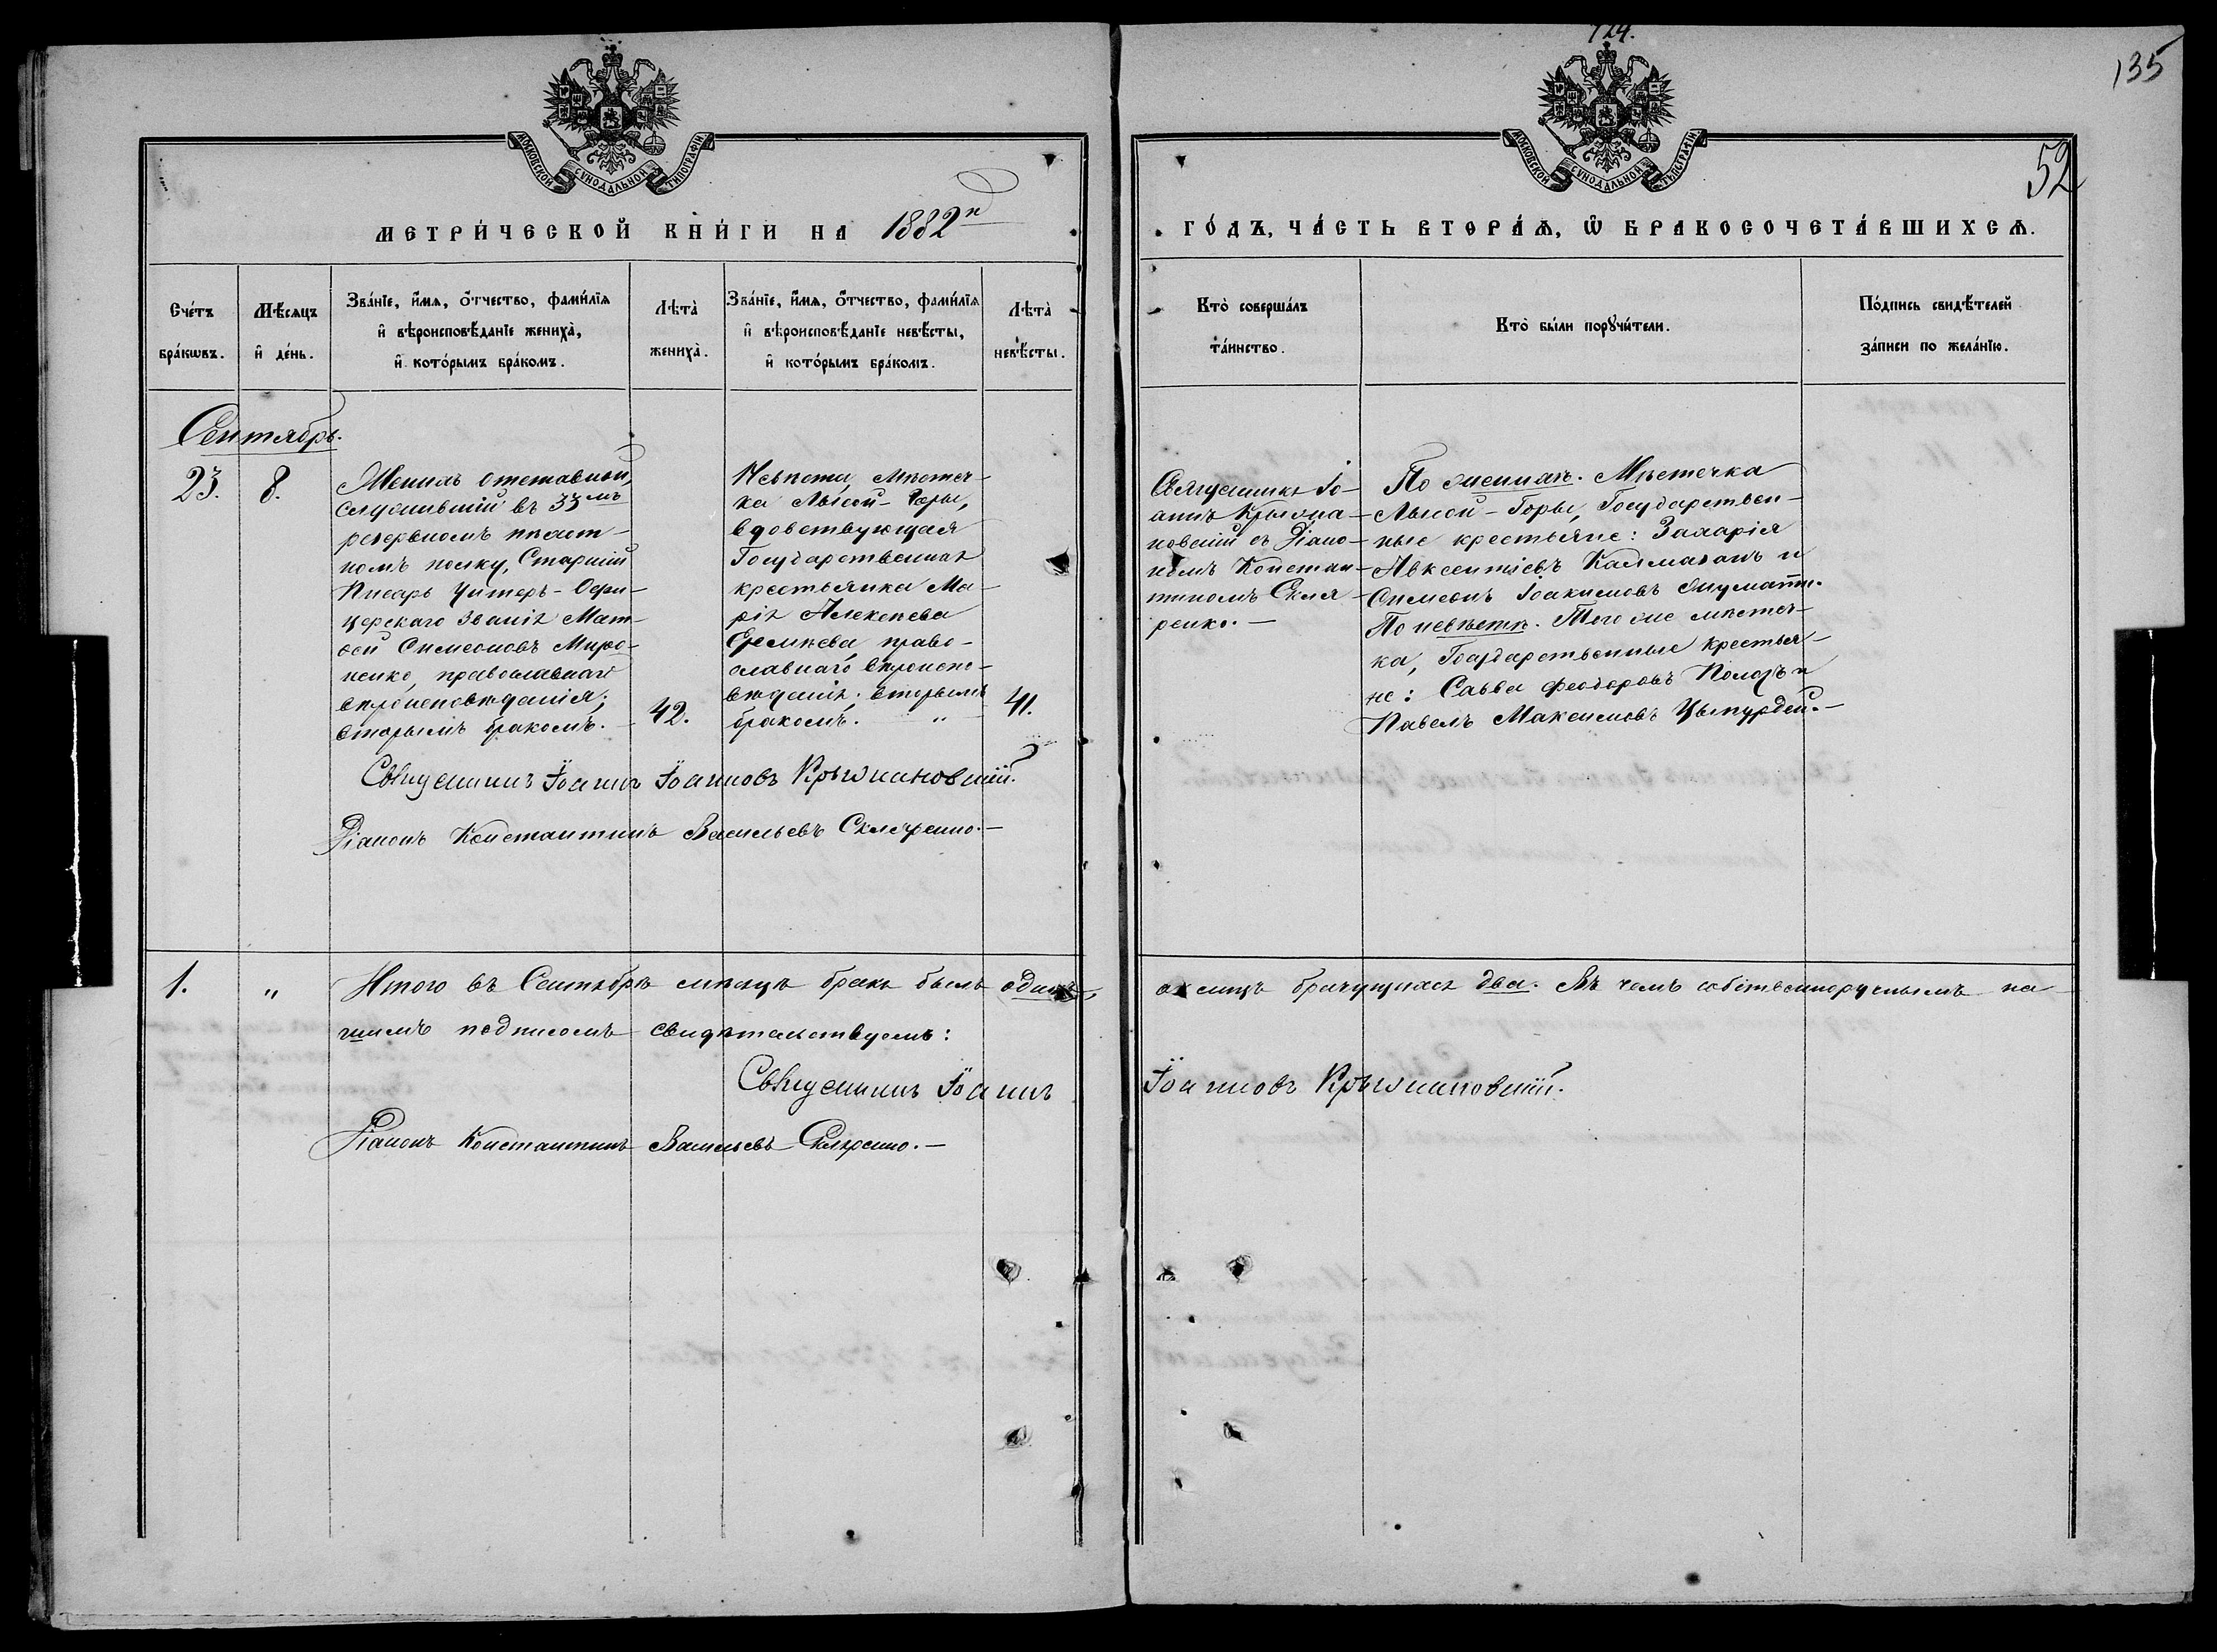 124.
135
52
МОСКОВСКОЙ СѴНОДАЛЬНОЙ ТИПОГРАФІИ
МОСКОВСКОЙ СѴНОДАЛЬНОЙ ТИПОГРАФІИ
МЕТРИ́ЧЕСКОЙ КНИ́ГИ НА 1882й
ГО́ДЪ, ЧА́СТЬ ВТОРА́Ѧ, Ѡ БРАКОСОЧЕТА́ВШИХСѦ.
Сче́тъ бра́кωвъ.
Мѣ́сяцъ и де́нь.
Зва́нїе, и́мѧ, о́тчество, фами́лїѧ и вѣроисповѣ́данїе жениха̀, и кото́рымъ бра́комъ.
Лѣта̀ жениха̀.
Зва́нїе, и́мѧ, о́тчество, фами́лїѧ и вѣроисповѣ́данїе невѣ́сты, и кото́рымъ бра́комъ.
Лѣта̀ невѣ́сты.
Кто̀ соверша́лъ та́инство.
Кто̀ бы́ли порꙋчи́тели.
По́дпись свидѣ́телей за́писи по жела́нїю.
Сентябрь.
23.
8.
Женихъ отставный,
служившій въ 33мъ
резервномъ пѣхот-
номъ полку, Старшій
Писарь Унтеръ-Офи-
церскаго званія Мат-
ѳей Симеоновъ Миро-
ненко, православнаго
вѣроисповѣданія;
вторымъ бракомъ. -
42.
Невѣста, мѣстеч-
ка Лысой-Горы,
вдовствующая
Государственная
крестьянка Ма-
рія Алексѣева
Еремѣева, право-
славнаго вѣроиспо-
вѣданія; вторымъ
бракомъ. „
41.
Священникъ Іо-
аннъ Крыжа-
новскій съ Діако-
номъ Констан-
тиномъ Скля-
ренко. -
По женихѣ. Мѣстечка
Лысой-Горы, Государствен-
ные крестьяне: Захарія
Авксентіевъ и
Симеонъ Іоакимовъ
По невѣстѣ. Того же мѣстеч-
ка, Государственные крестья-
не: Савва Феодоровъ Полозъ и
Павелъ Максимовъ -
Священникъ Іоаннъ Іоанновъ Крыжановскій.
Діаконъ Константинъ Васильевъ Скляренко. -
1.
„
Итого въ Сентябрѣ мѣсяцѣ бракъ былъ одинъ,
а лицъ брачущихся два. Въ чемъ собственноручнымъ на-
шимъ подписомъ свидѣтельствуемъ:
Священникъ Іоаннъ Іоанновъ Крыжановскій.
Діаконъ Константинъ Васильевъ Скляренко. -